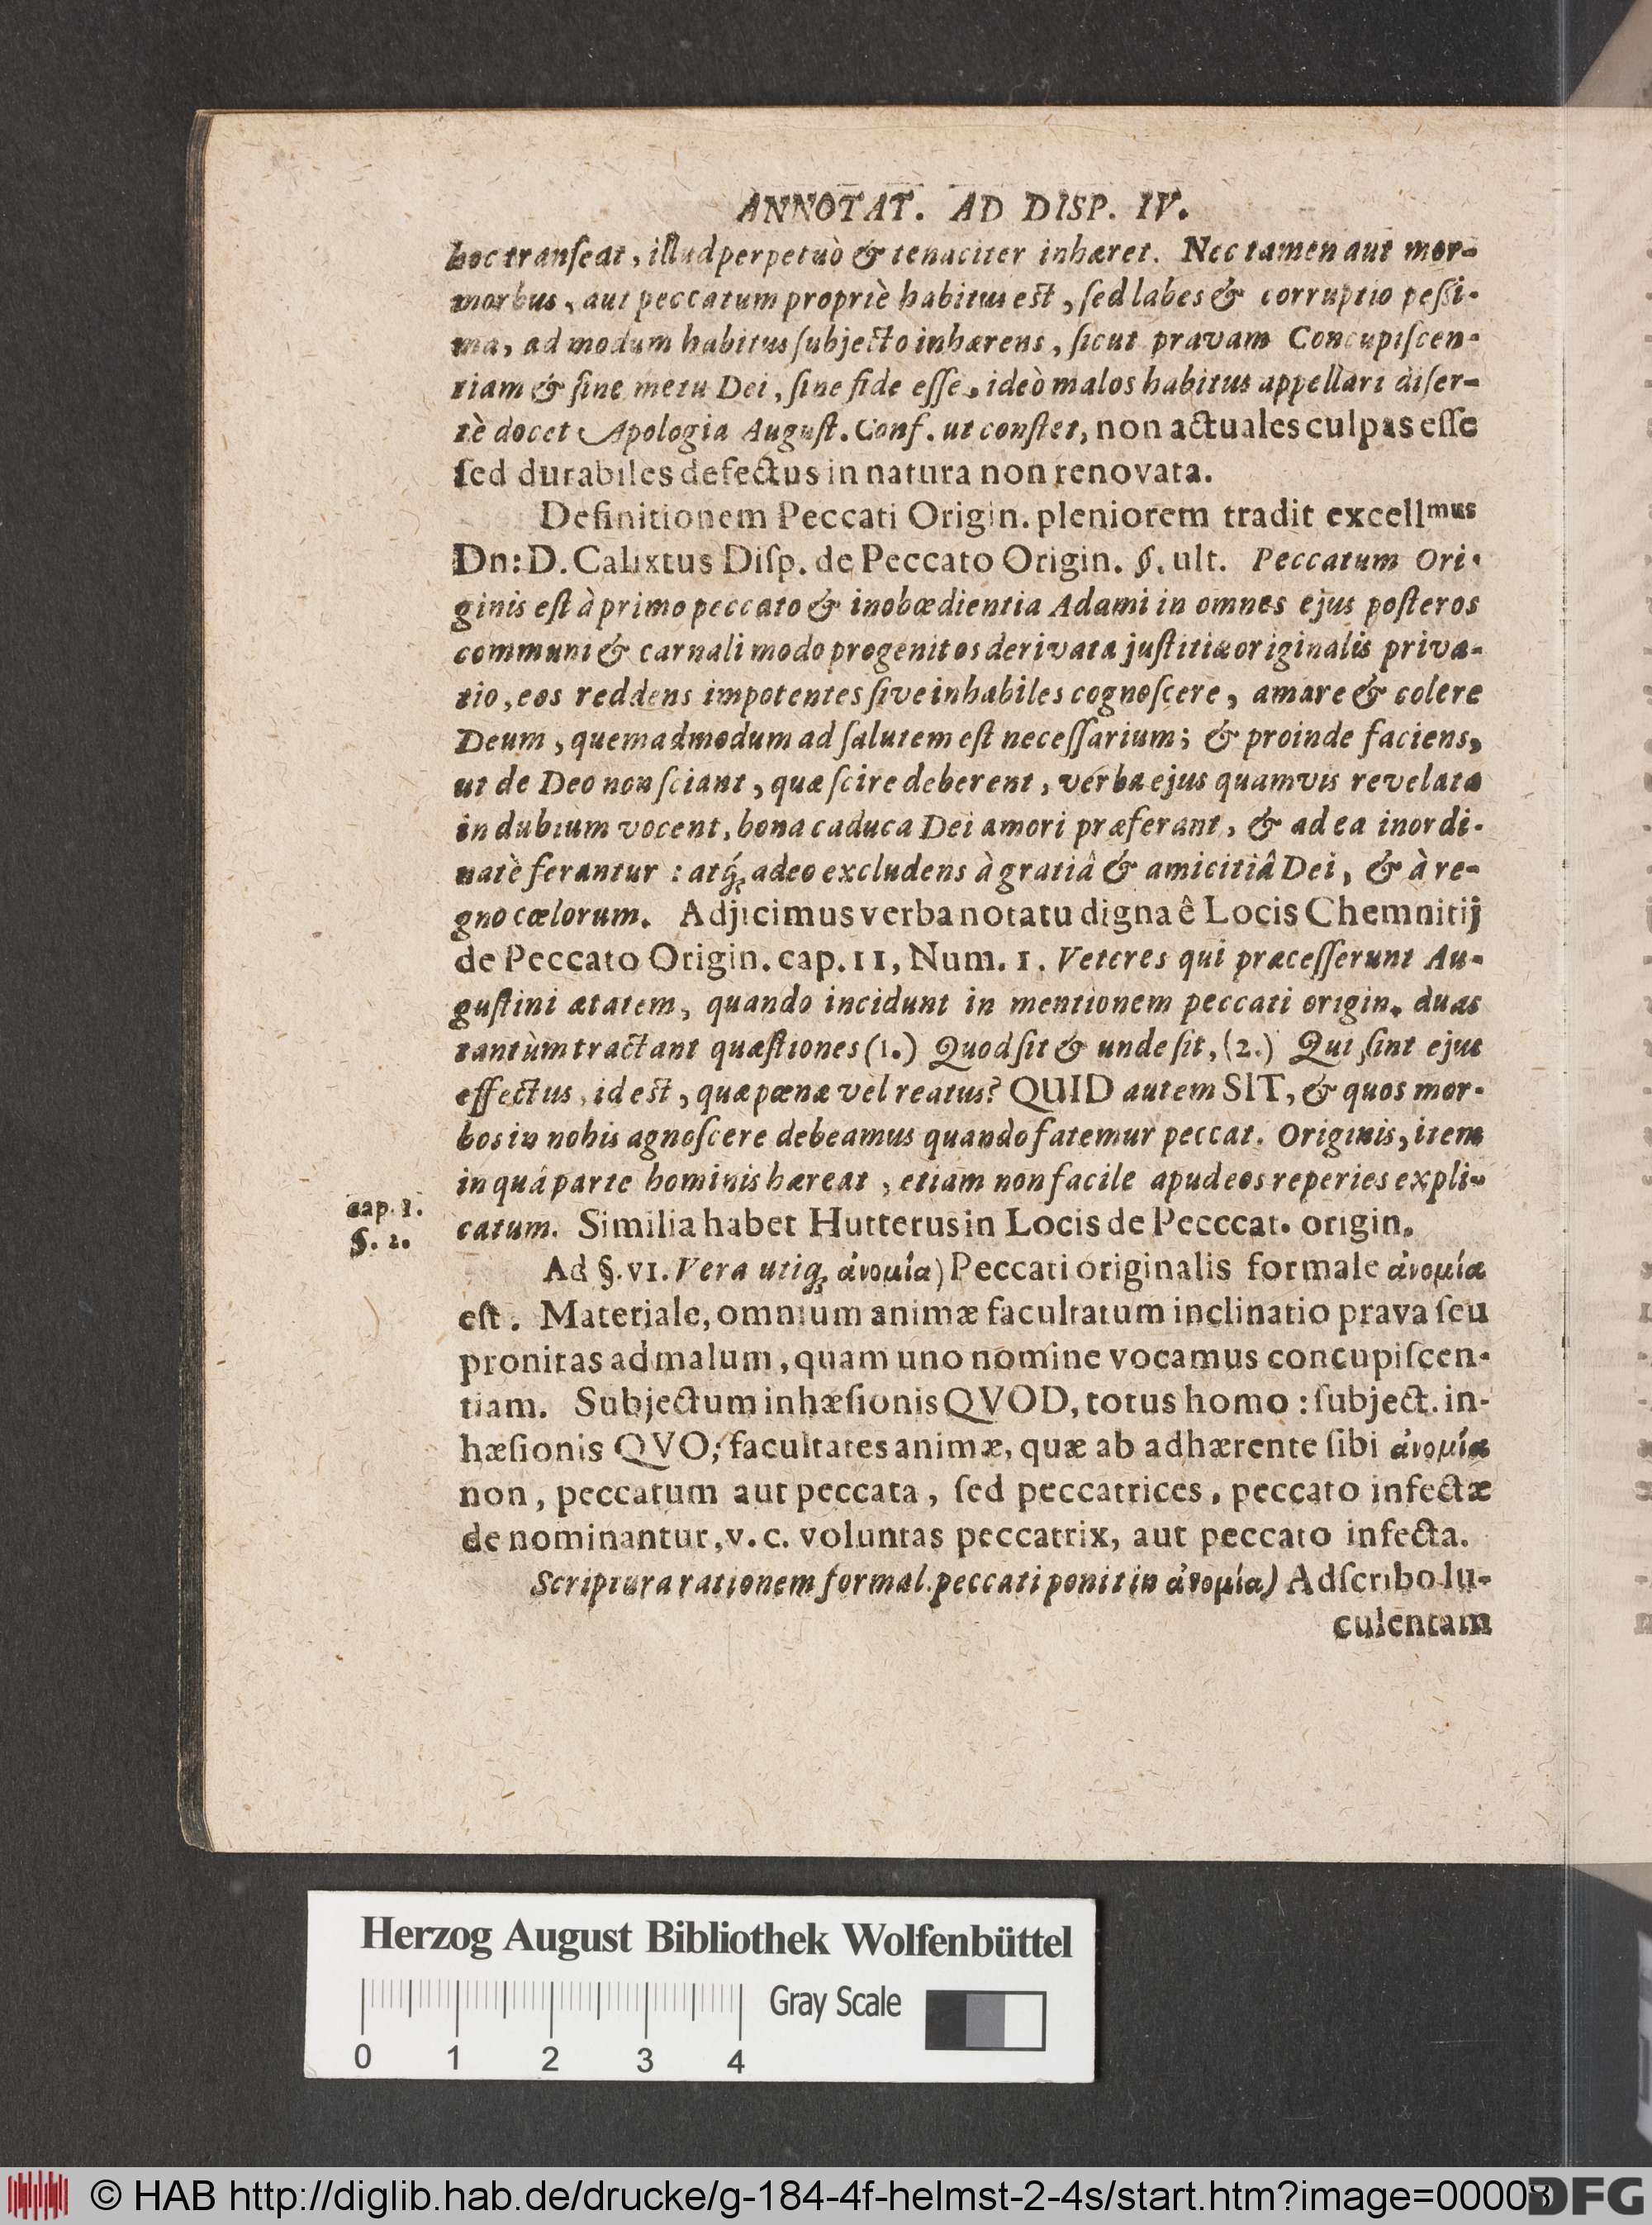 ANNOTAT. AD DISP. IV.
hoc tranſeat, illud perpetuò & tenaciter inhæret. Nec tamen aut mor-
morbus, aut peccatum propriè habitus est, ſed labes & corruptio peſſi-
ma, ad modum habitus ſubjecto inhærens, ſicut pravam Concupiſcen-
tiam & ſine metu Dei, ſine fide eſſe, ideò malos habitus appellari diſer-
tè docet Apologia Auguſt. Conf. ut conſtet, non actuales culpas eſſe
ſed durabiles defectus in natura non renovata.
Definitionem Peccati Origin. pleniorem tradit excellmus
Dn: D. Calixtus Diſp. de Peccato Origin. §. ult. Peccatum Ori-
ginis eſt à primo peccato & inobœdientia Adami in omnes ejus poſteros
communi & carnali modo progenitos derivata juſtitiæ originalis priva-
tio, eos reddens impotentes ſive inhabiles cognoſcere, amare & colere
Deum, quemadmodum ad ſalutem eſt neceſſarium; & proinde faciens,
ut de Deo non ſciant, quæ ſcire deberent, verba ejus quamvis revelata
in dubium vocent, bona caduca Dei amori præferant, & ad ea inordi-
natè ferantur: atq́; adeo excludens à gratiâ & amicitiâ Dei, & à re-
gno cœlorum. Adjicimus verba notatu digna ê Locis Chemnitij
de Peccato Origin. cap. 11, Num. 1. Veteres qui præceſſerunt Au-
guſtini ætatem, quando incidunt in mentionem peccati origin. duas
tantùm tractant quæſtiones (1.) Quod ſit & unde ſit, (2.) Qui ſint ejus
effectus, id est, quæ pœnæ vel reatus? QUID autem SIT, & quos mor-
bos in nobis agnoſcere debeamus quando fatemur peccat. Originis, item
in quâ parte hominis hæreat, etiam non facile apud eos reperies expli-
catum. Similia habet Hutterus in Locis de Pecccat. origin.
cap. 1.
§. 2.
Ad §. VI. Vera utiq; ἀνομία) Peccati originalis formale ἀνομία
eſt. Materiale, omnium animæ facultatum inclinatio prava ſeu
pronitas ad malum, quam uno nomine vocamus concupiſcen-
tiam. Subjectum inhæſionis QVOD, totus homo: ſubject. in-
hæſionis QVO; facultates animæ, quæ ab adhærente ſibi ἀνομία
non, peccatum aut peccata, ſed peccatrices, peccato infectæ
denominantur, v. c. voluntas peccatrix, aut peccato infecta.
Scriptura rationem formal. peccati ponit in ἀνομία) Adſcribo lu-
culentam
Herzog August Bibliothek Wolfenbüttel
Gray Scale
0 1 2 3 4
© HAB http://diglib.hab.de/drucke/g-184-4f-helmst-2-4s/start.htm?image=00008
DFG